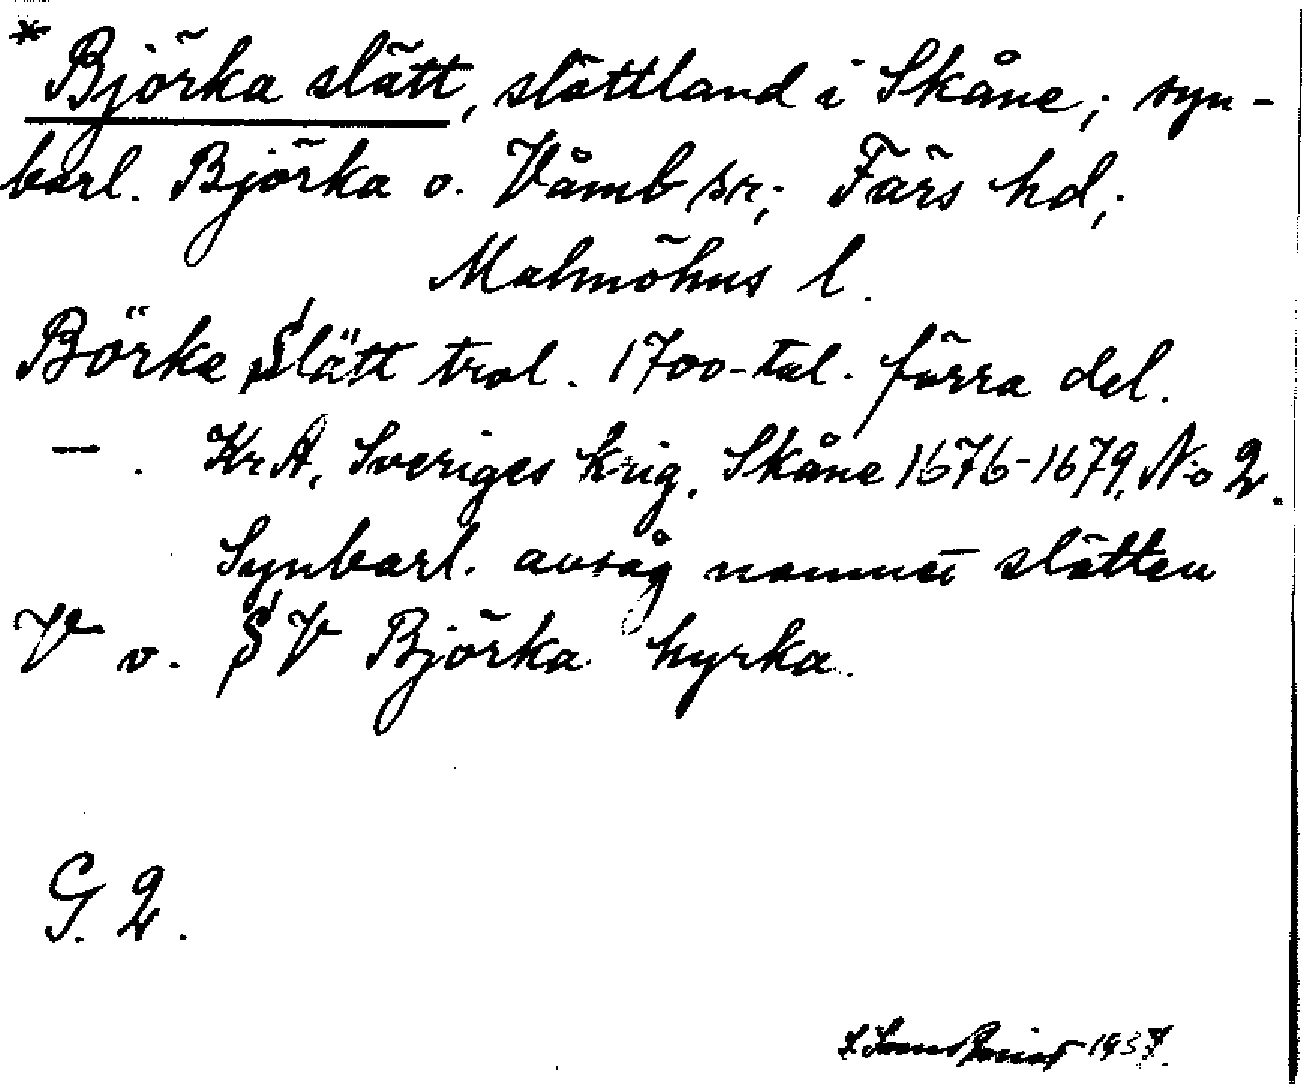 * Björka slätt, slättland i Skåne; syn-
barl. Björka o. Våmb sr; Färs hd;
Malmöhus l.
Börke Slätt trol. 1700-tal. förra del.
— . Kr A, Sveriges krig. Skåne 1676-1679, No 2.
Synbarl. avsåg namnet slätten
V o. SV Björka kyrka.
G. 2.
1937.